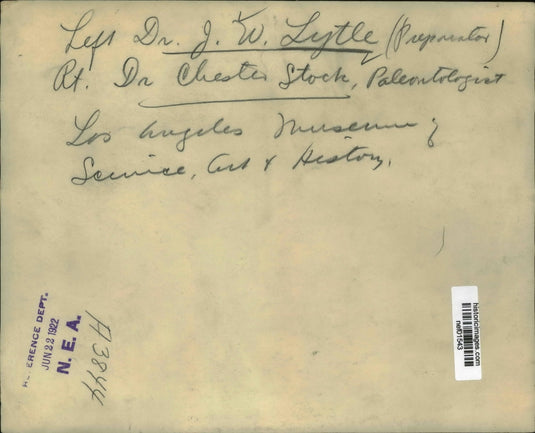 Left Dr. J. W. Lytle (Preparator)
Rt. Dr Chester Stock, Paleontologist
Los Angeles Museum of
Science, Art & History.
REFERENCE DEPT.
JUN 22 1922
N. E. A.
A3844
historicimages.com